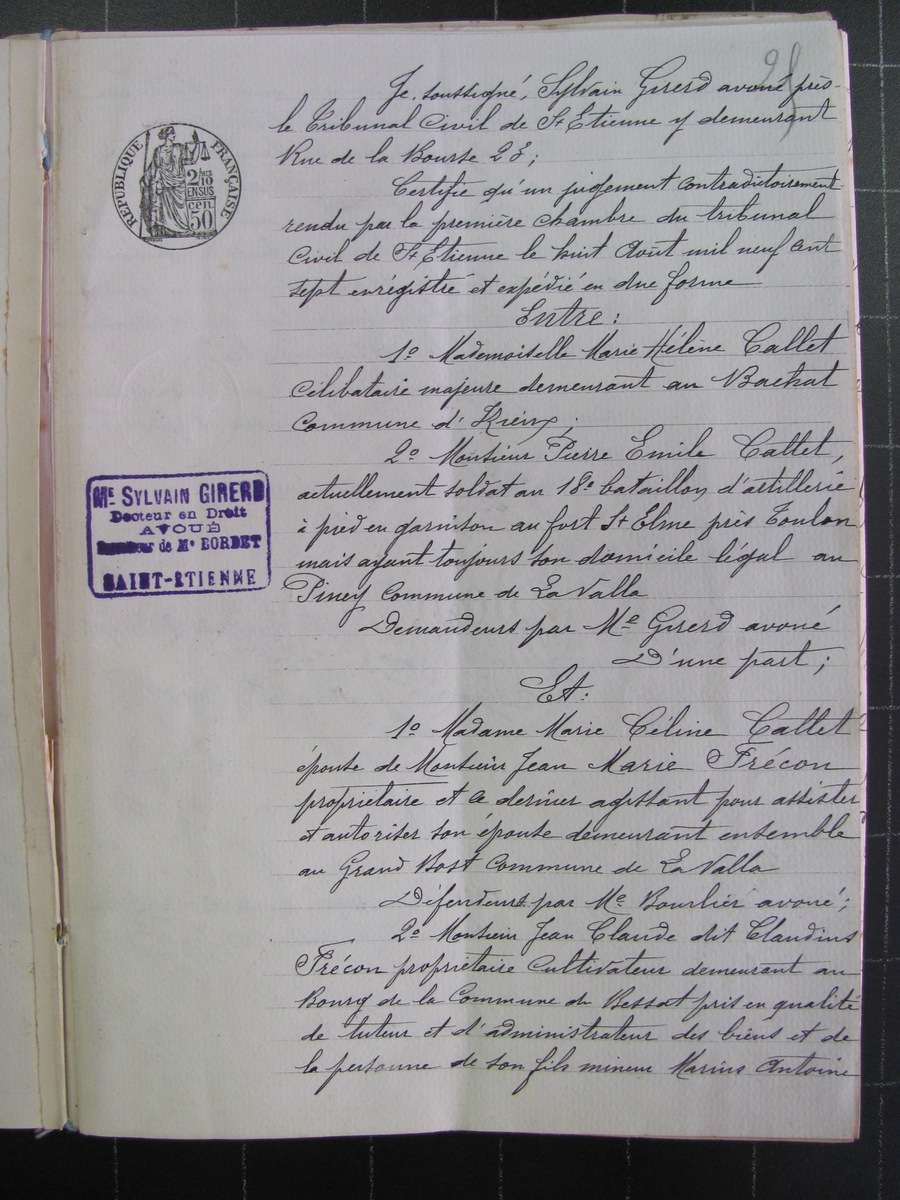 25
Je soussigné, Sylvain Girerd avoué près
le Tribunal Civil de St Etienne y demeurant
Rue de la Bourse 23;
Certifie qu'un jugement contradictoirement
rendu par la première chambre du tribunal
Civil de St Etienne le huit Août mil neuf cent
sept enrégistré et expédié en due forme
Entre:
1º Mademoiselle Marie Hélène Callet
Célibataire majeure demeurant au Bachat
Commune d'
2º Monsieur Pierre Emile Callet,
actuellement soldat au 18e bataillon d'artillerie
à pied en garnison au fort St Elme près Toulon
mais ayant toujours son domicile légal au
Piney Commune de La Valla
Demandeurs par Me Girerd avoué
D'une part;
Et:
1º Madame Marie Céline Callet
épouse de Monsieur Jean Marie Frécon
propriétaire et ce dernier agissant pour assister
et autoriser son épouse demeurant ensemble
au Grand Bost Commune de La Valla
Défendeurs par Me Bourlier avoué;
2º Monsieur Jean Claude dit Claudius
Frécon propriétaire Cultivateur demeurant au
Bourg de la Commune du Bessat pris en qualité
de tuteur et d'administrateur des biens et de
la personne de son fils mineur Marius Antoine
RÉPUBLIQUE FRANÇAISE
2/10
EN SUS
cen.
50
Me SYLVAIN GIRERD
Docteur en Droit
AVOUÉ
Successeur de Me BORDET
SAINT-ETIENNE